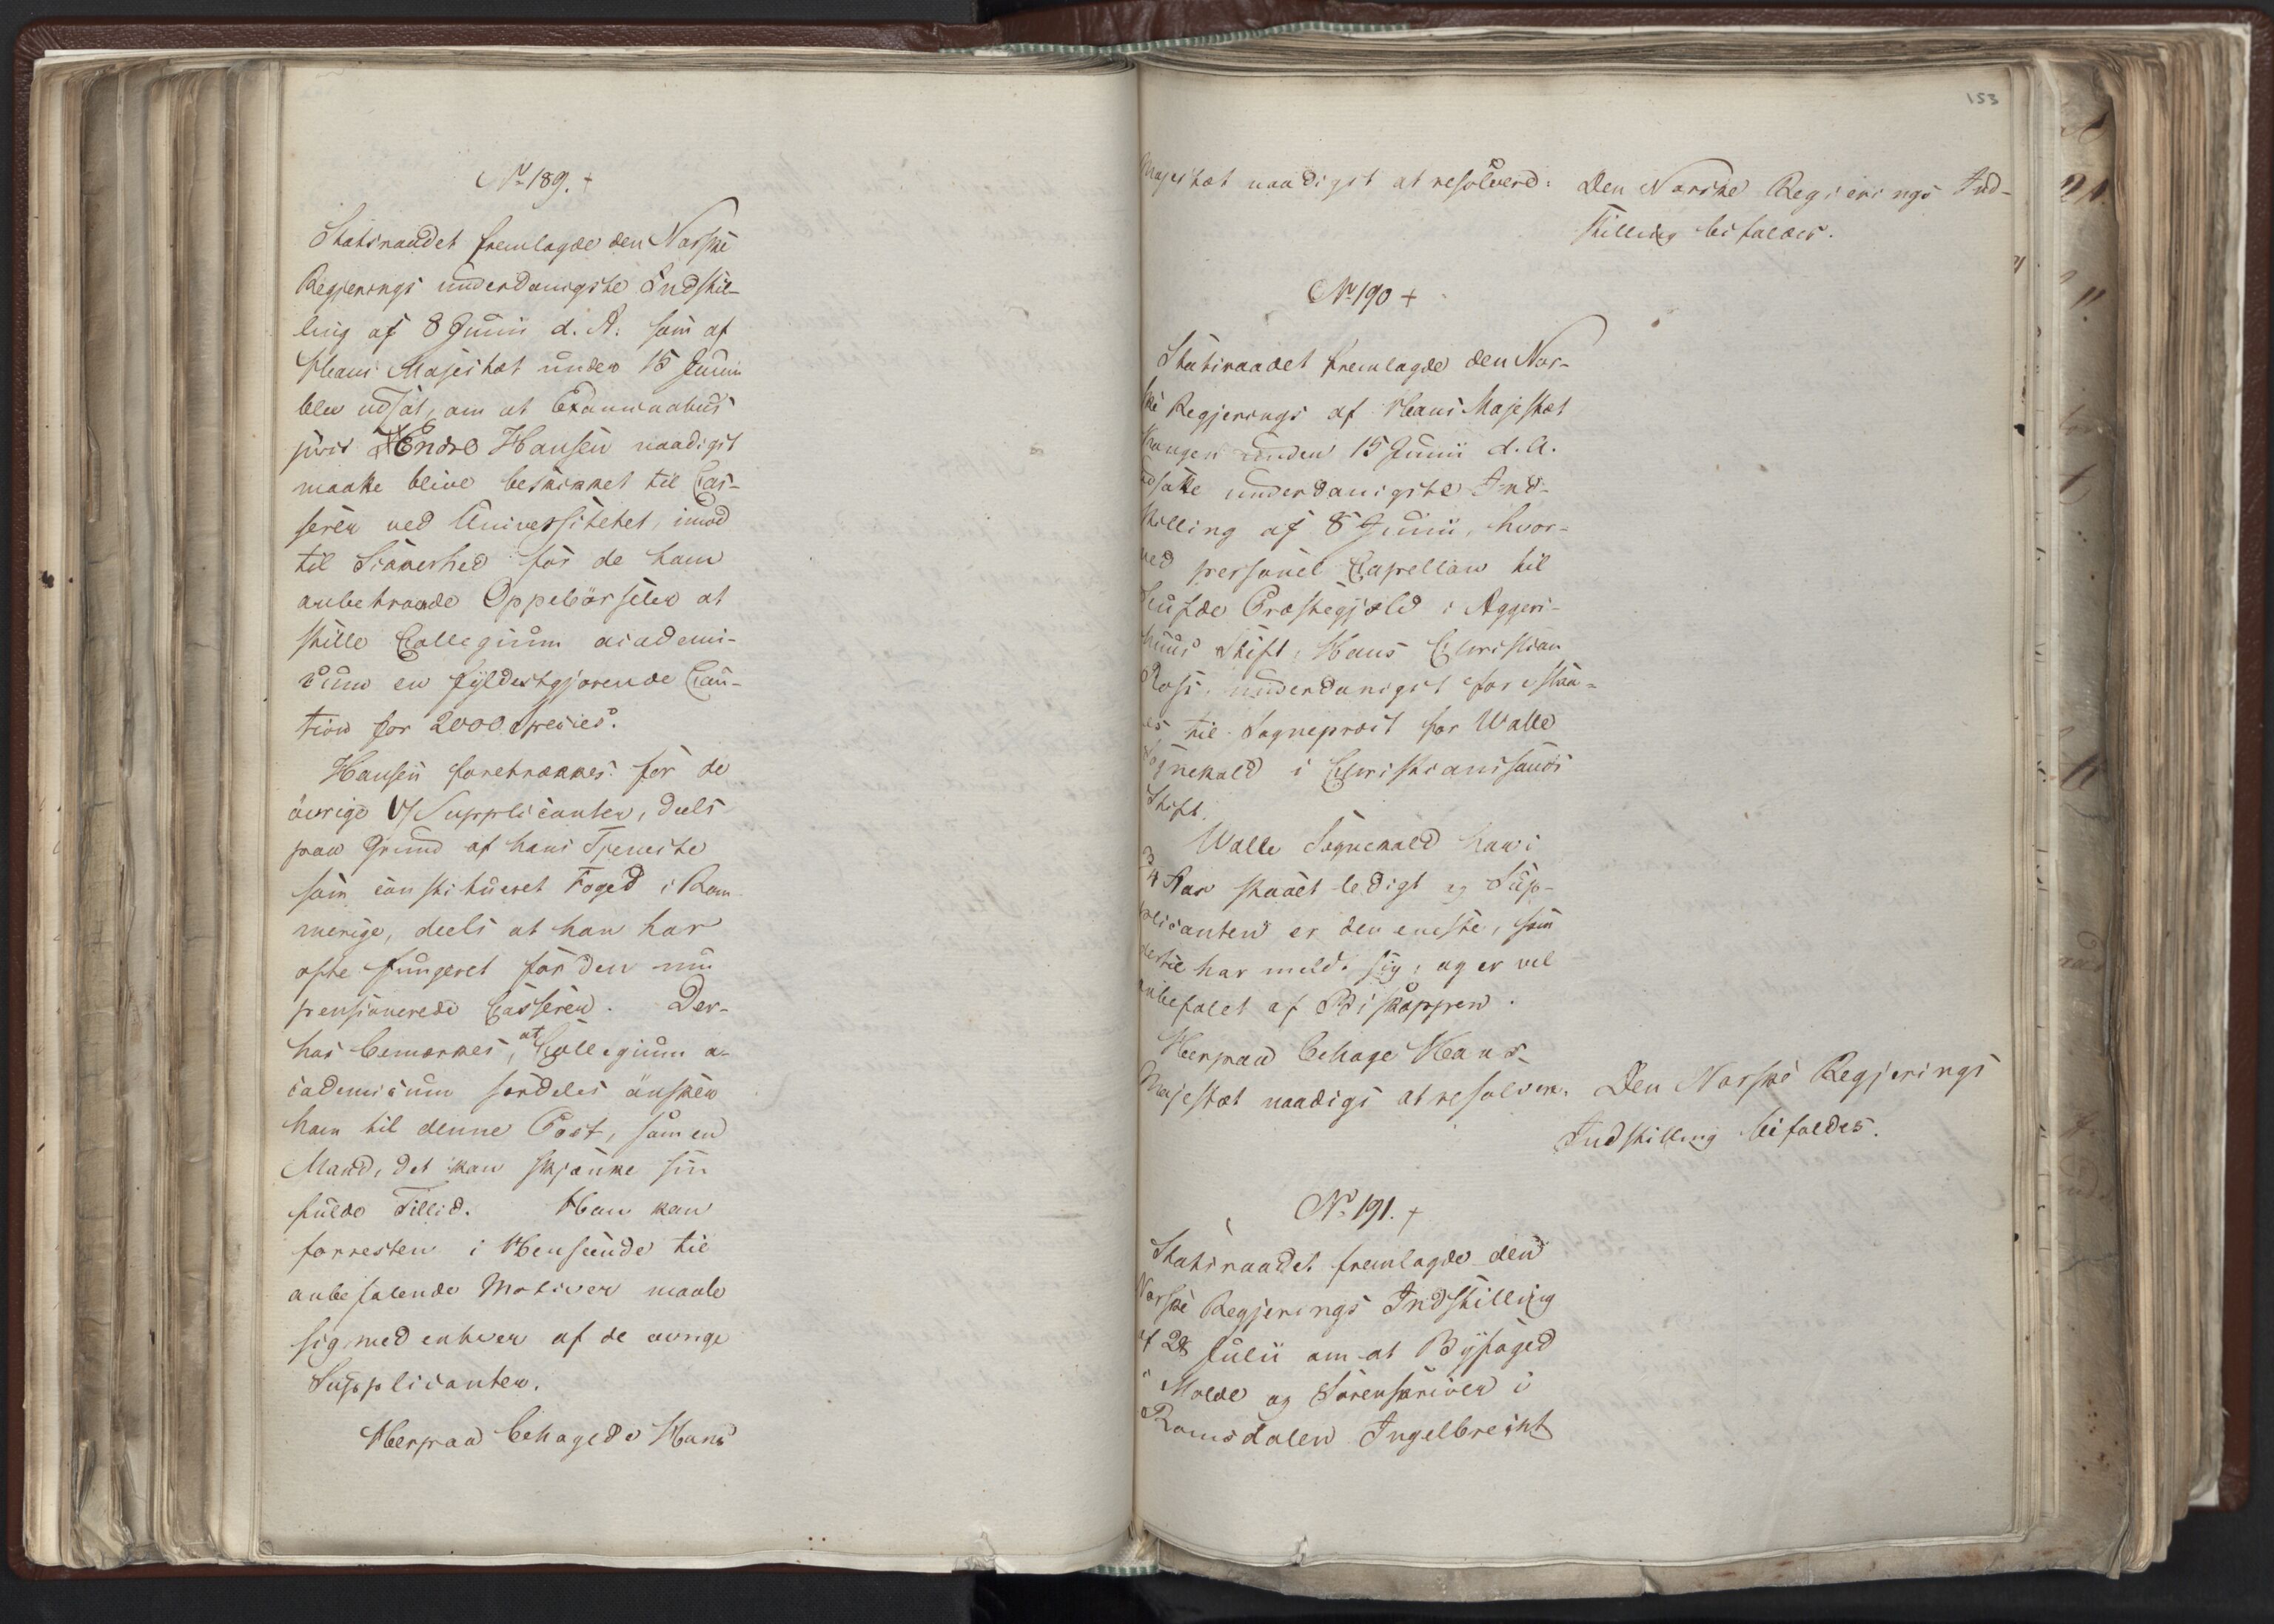 No 189. +
Statsraadet fremlagde den Norske
Regjerings underdanigste Indstil-
ling af 8 Junii d. A. som af
Hans Majestæt under 15 Junii
blev udsat, om at Examinatus
juris Endre Hansen naadigst
maatte blive beskikket til Cas-
serer ved Universitetet, imod
til Sikkerhed for de ham
anbetroede Oppebörseler at
stille Collegium academi-
cum en fyldestgjorende Cau-
tion for 2000 Species.
Hansen foretrækkes for de
övrige 17 Supplicanter, deels
paa Grund af hans Tjeneste
som constitueret Foged i Rom
merige, deels at han har
ofte fungeret for den nu
pensionerede Casserer. Der-
hos bemærkes, at Collegium a-
cademicum særdeles önsker
ham til denne Post, som en
Mand, det kan skjænke sin
fulde Tillid. Han kan
forresten i Henseende til
anbefalende Motiver maale
sig med enhver af de övrige
Supplicanter.
Herpaa behagede Hans
153
Majestæt naadigst at resolvere: Den Norske Regjerings Ind-
stilling bifaldes.
No 190 +
Statsraadet fremlagde den Nor-
ske Regjerings af Hans Majestæt
Kongen under 15 Junii d. A.
udsatte underdanigste Ind-
stilling af 8 Junii, hvor-
ved personel Capellan til
Præstegjæld i Aggers-
huus Stift, Hans Christian
underdanigst forestaa-
es til Sogneprest for Walle
Sognekald i Christiansands
Stift.
Walle Sognekald har i
3/4 Aar staaet ledigt og Sup-
plicanten er den eneste, som
dertil har meldt sig, og er vel
anbefalet af Biskoppen.
Herpaa behage Hans
Majestæt naadigst at resolvere: Den Norske Regjerings
Indstilling bifaldes.
No 191. +
Statsraadet fremlagde den
Norske Regjerings Indstilling
af 28 Julii om at Byfoged
i Molde og Sorenskriver i
Romsdalen Ingelbrecht